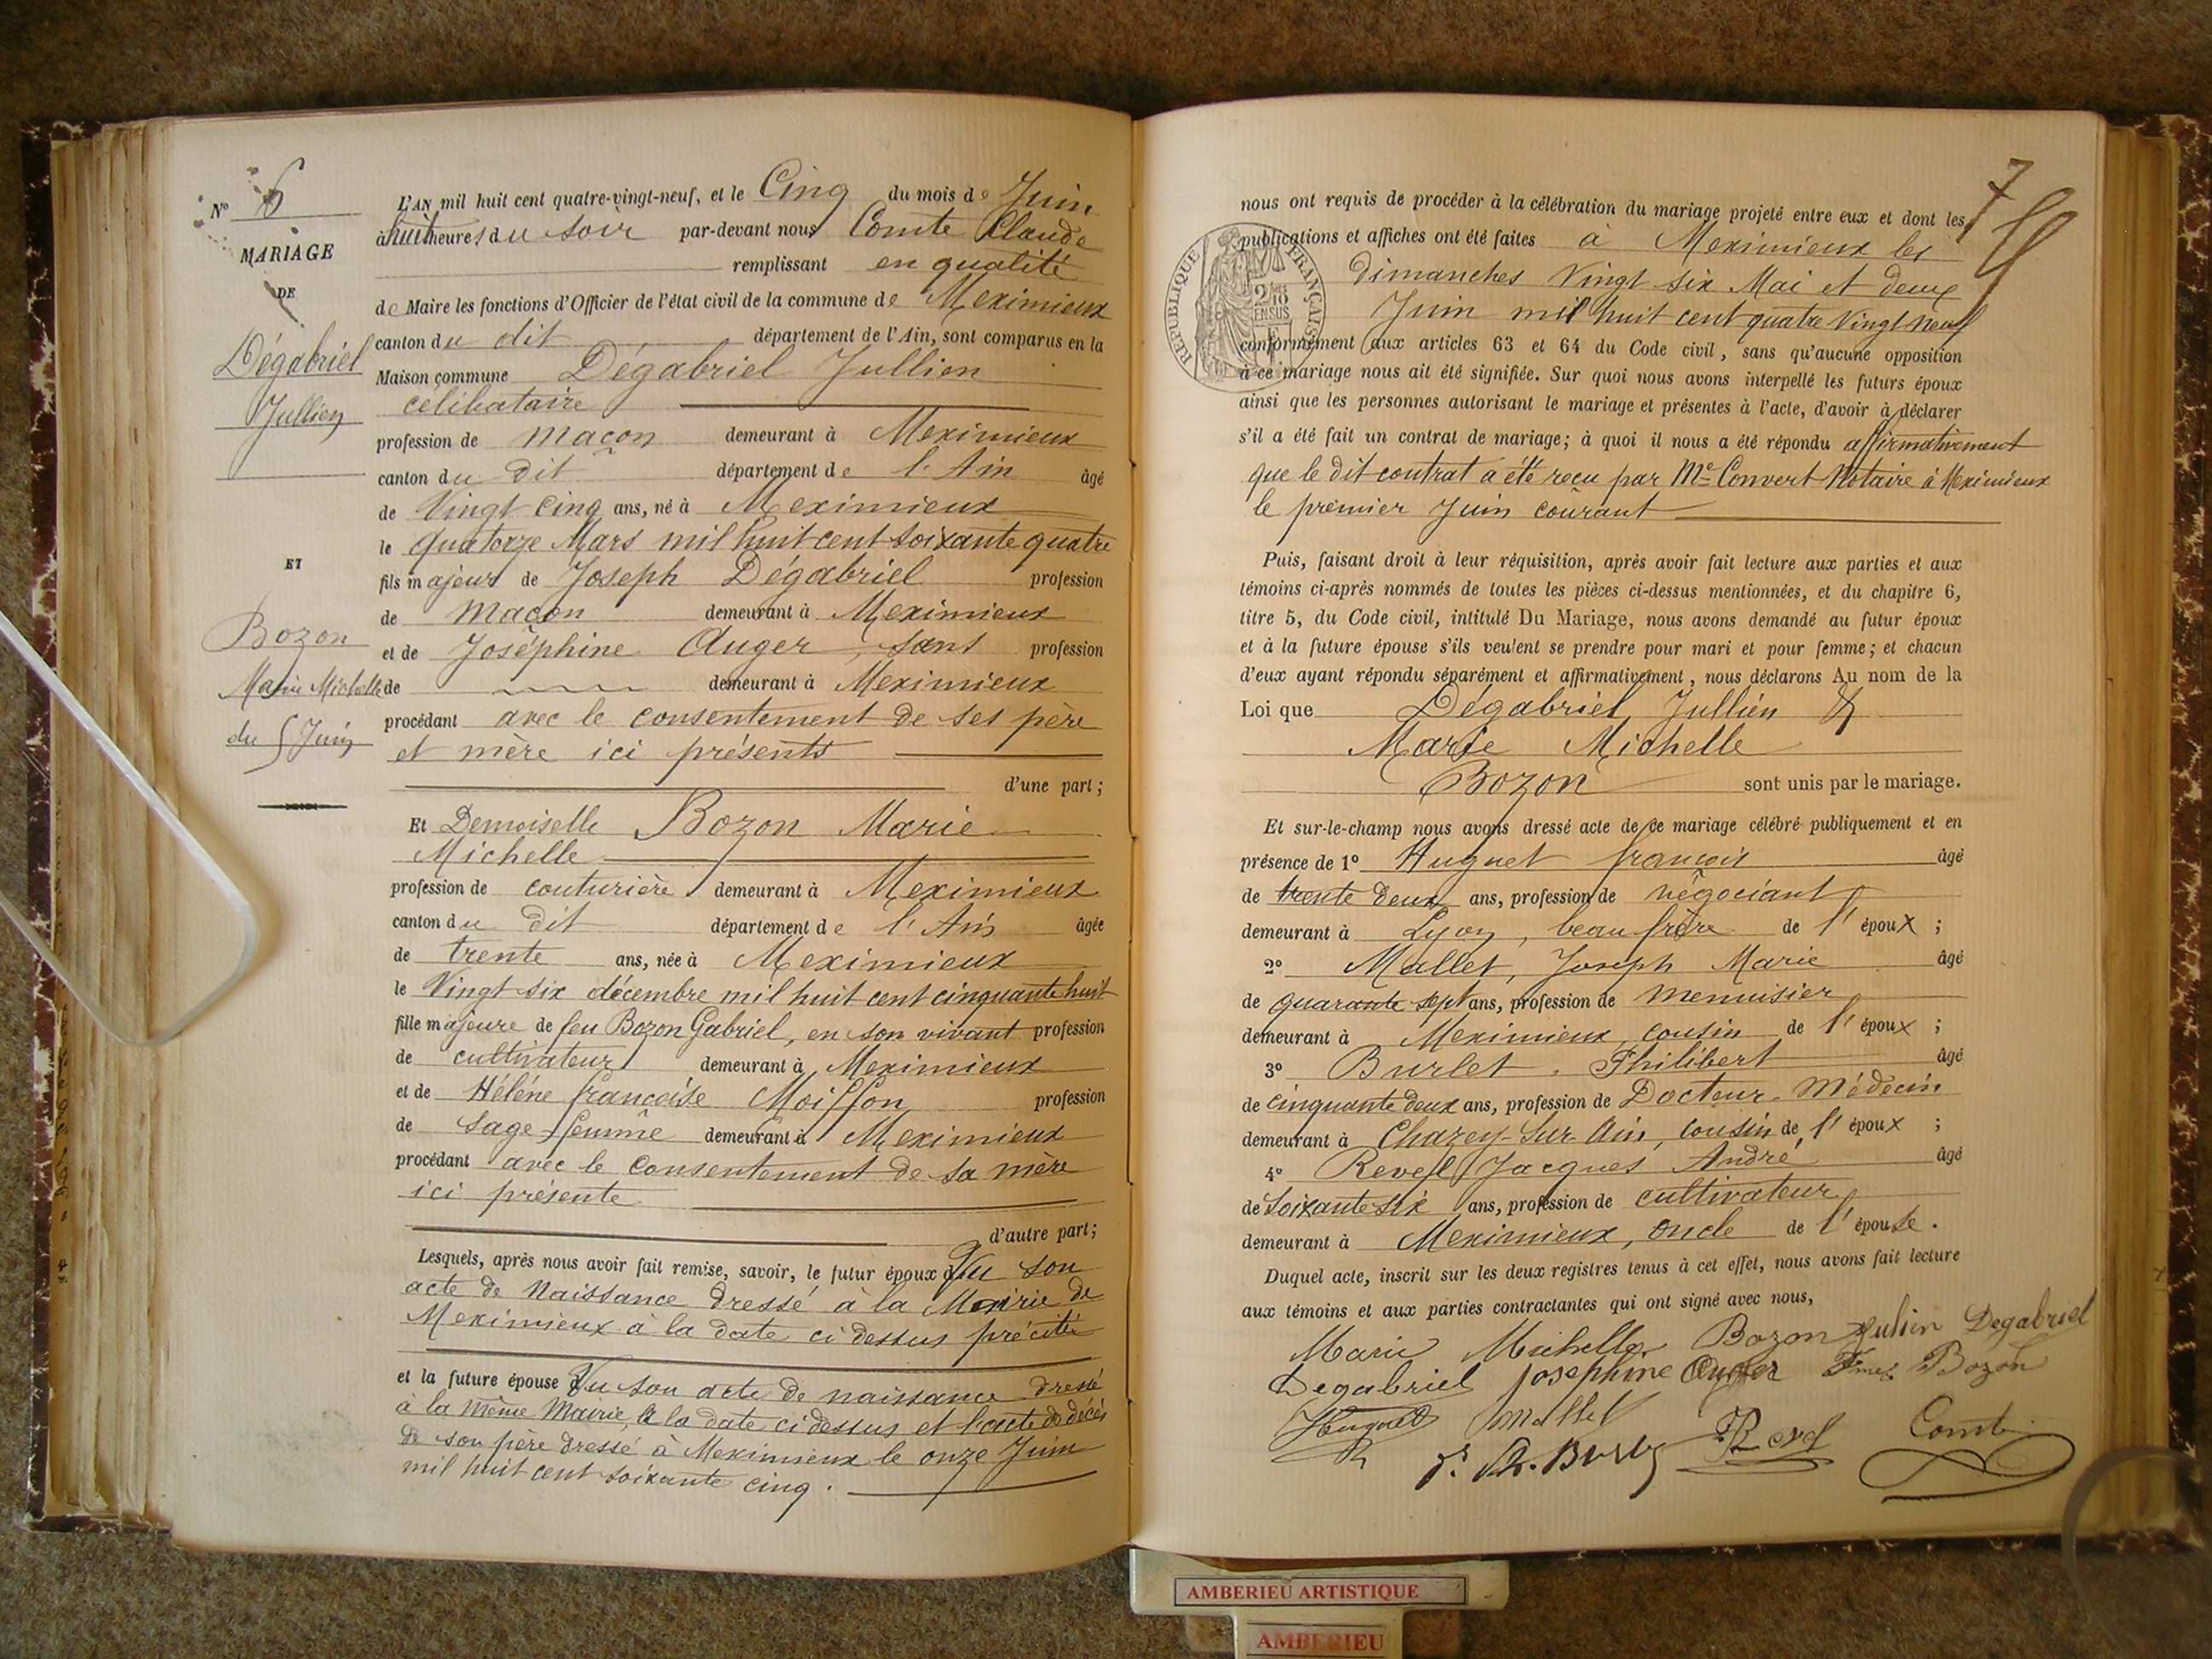 N° 6
MARIAGE
DE
Dégabriel
Jullien
ET
Bozon
Marie Michelle
du 5 Juin
L'AN mil huit cent quatre-vingt-neuf, et le Cinq du mois de Juin
à huit heures du soir par-devant nous Comte Claude
remplissant en qualité
de Maire les fonctions d'Officier de l'état civil de la commune de Meximieux
canton du dit département de l'Ain, sont comparus en la
Maison commune Dégabriel Jullien
célibataire
profession de maçon demeurant à Meximieux
canton du dit département de l'Ain âgé
de Vingt cinq ans, né à Meximieux
le quatorze Mars mil huit cent soixante quatre
fils majeur de Joseph Dégabriel profession
de maçon demeurant à Meximieux
et de Joséphine Auger, sans profession
de demeurant à Meximieux
procédant avec le consentement de ses père
et mère ici présents
d'une part;
Et Demoiselle Bozon Marie
Michelle
profession de couturière demeurant à Meximieux
canton du dit département de l'Ain âgée
de trente ans, née à Meximieux
le Vingt six décembre mil huit cent cinquante huit
fille majeure de feu Bozon Gabriel, en son vivant profession
de cultivateur demeurant à Meximieux
et de Hélène françoise Moiffon profession
de Sage femme demeurant à Meximieux
procédant avec le consentement de sa mère
ici présente
d'autre part;
Lesquels, après nous avoir fait remise, savoir, le futur époux Vu son
acte de Naissance dressé à la Mairie de
Meximieux à la date ci dessus précitée
et la future épouse Vu son acte de naissance dressé
à la même Mairie, à la date ci dessus et l'acte de décès
de son père dressé à Meximieux le onze Juin
mil huit cent soixante cinq.
7
nous ont requis de procéder à la célébration du mariage projeté entre eux et dont les
publications et affiches ont été faites à Meximieux les
dimanches Vingt six Mai et deux
Juin mil huit cent quatre Vingt neuf
RÉPUBLIQUE FRANÇAISE
2/10 EN SUS
conformément aux articles 63 et 64 du Code civil, sans qu'aucune opposition
à ce mariage nous ait été signifiée. Sur quoi nous avons interpellé les futurs époux
ainsi que les personnes autorisant le mariage et présentes à l'acte, d'avoir à déclarer
s'il a été fait un contrat de mariage; à quoi il nous a été répondu affirmativement
que le dit contrat a été reçu par Me Convert Notaire à Meximieux
le premier Juin courant
Puis, faisant droit à leur réquisition, après avoir fait lecture aux parties et aux
témoins ci-après nommés de toutes les pièces ci-dessus mentionnées, et du chapitre 6,
titre 5, du Code civil, intitulé Du Mariage, nous avons demandé au futur époux
et à la future épouse s'ils veulent se prendre pour mari et pour femme; et chacun
d'eux ayant répondu séparément et affirmativement, nous déclarons Au nom de la
Loi que Dégabriel Jullien &
Marie Michelle
Bozon sont unis par le mariage.
Et sur-le-champ nous avons dressé acte de ce mariage célébré publiquement et en
présence de 1° Huguet françois âgé
de trente deux ans, profession de négociant
demeurant à Lyon, beau frère de l'époux ;
2° Mallet, Joseph Marie âgé
de quarante sept ans, profession de menuisier
demeurant à Meximieux, cousin de l'époux ;
3° Burlet, Philibert âgé
de cinquante deux ans, profession de Docteur-Médecin
demeurant à Chazey-Sur-Ain, cousin de l'époux ;
4° Revel Jacques André âgé
de soixante six ans, profession de cultivateur
demeurant à Meximieux, oncle de l'épouse.
Duquel acte, inscrit sur les deux registres tenus à cet effet, nous avons fait lecture
aux témoins et aux parties contractantes qui ont signé avec nous,
Marie Michelle Bozon Julien Degabriel
Degabriel Josephine Auger Bozon
Huguet Mallet Revel Comte
AMBERIEU ARTISTIQUE
AMBERIEU